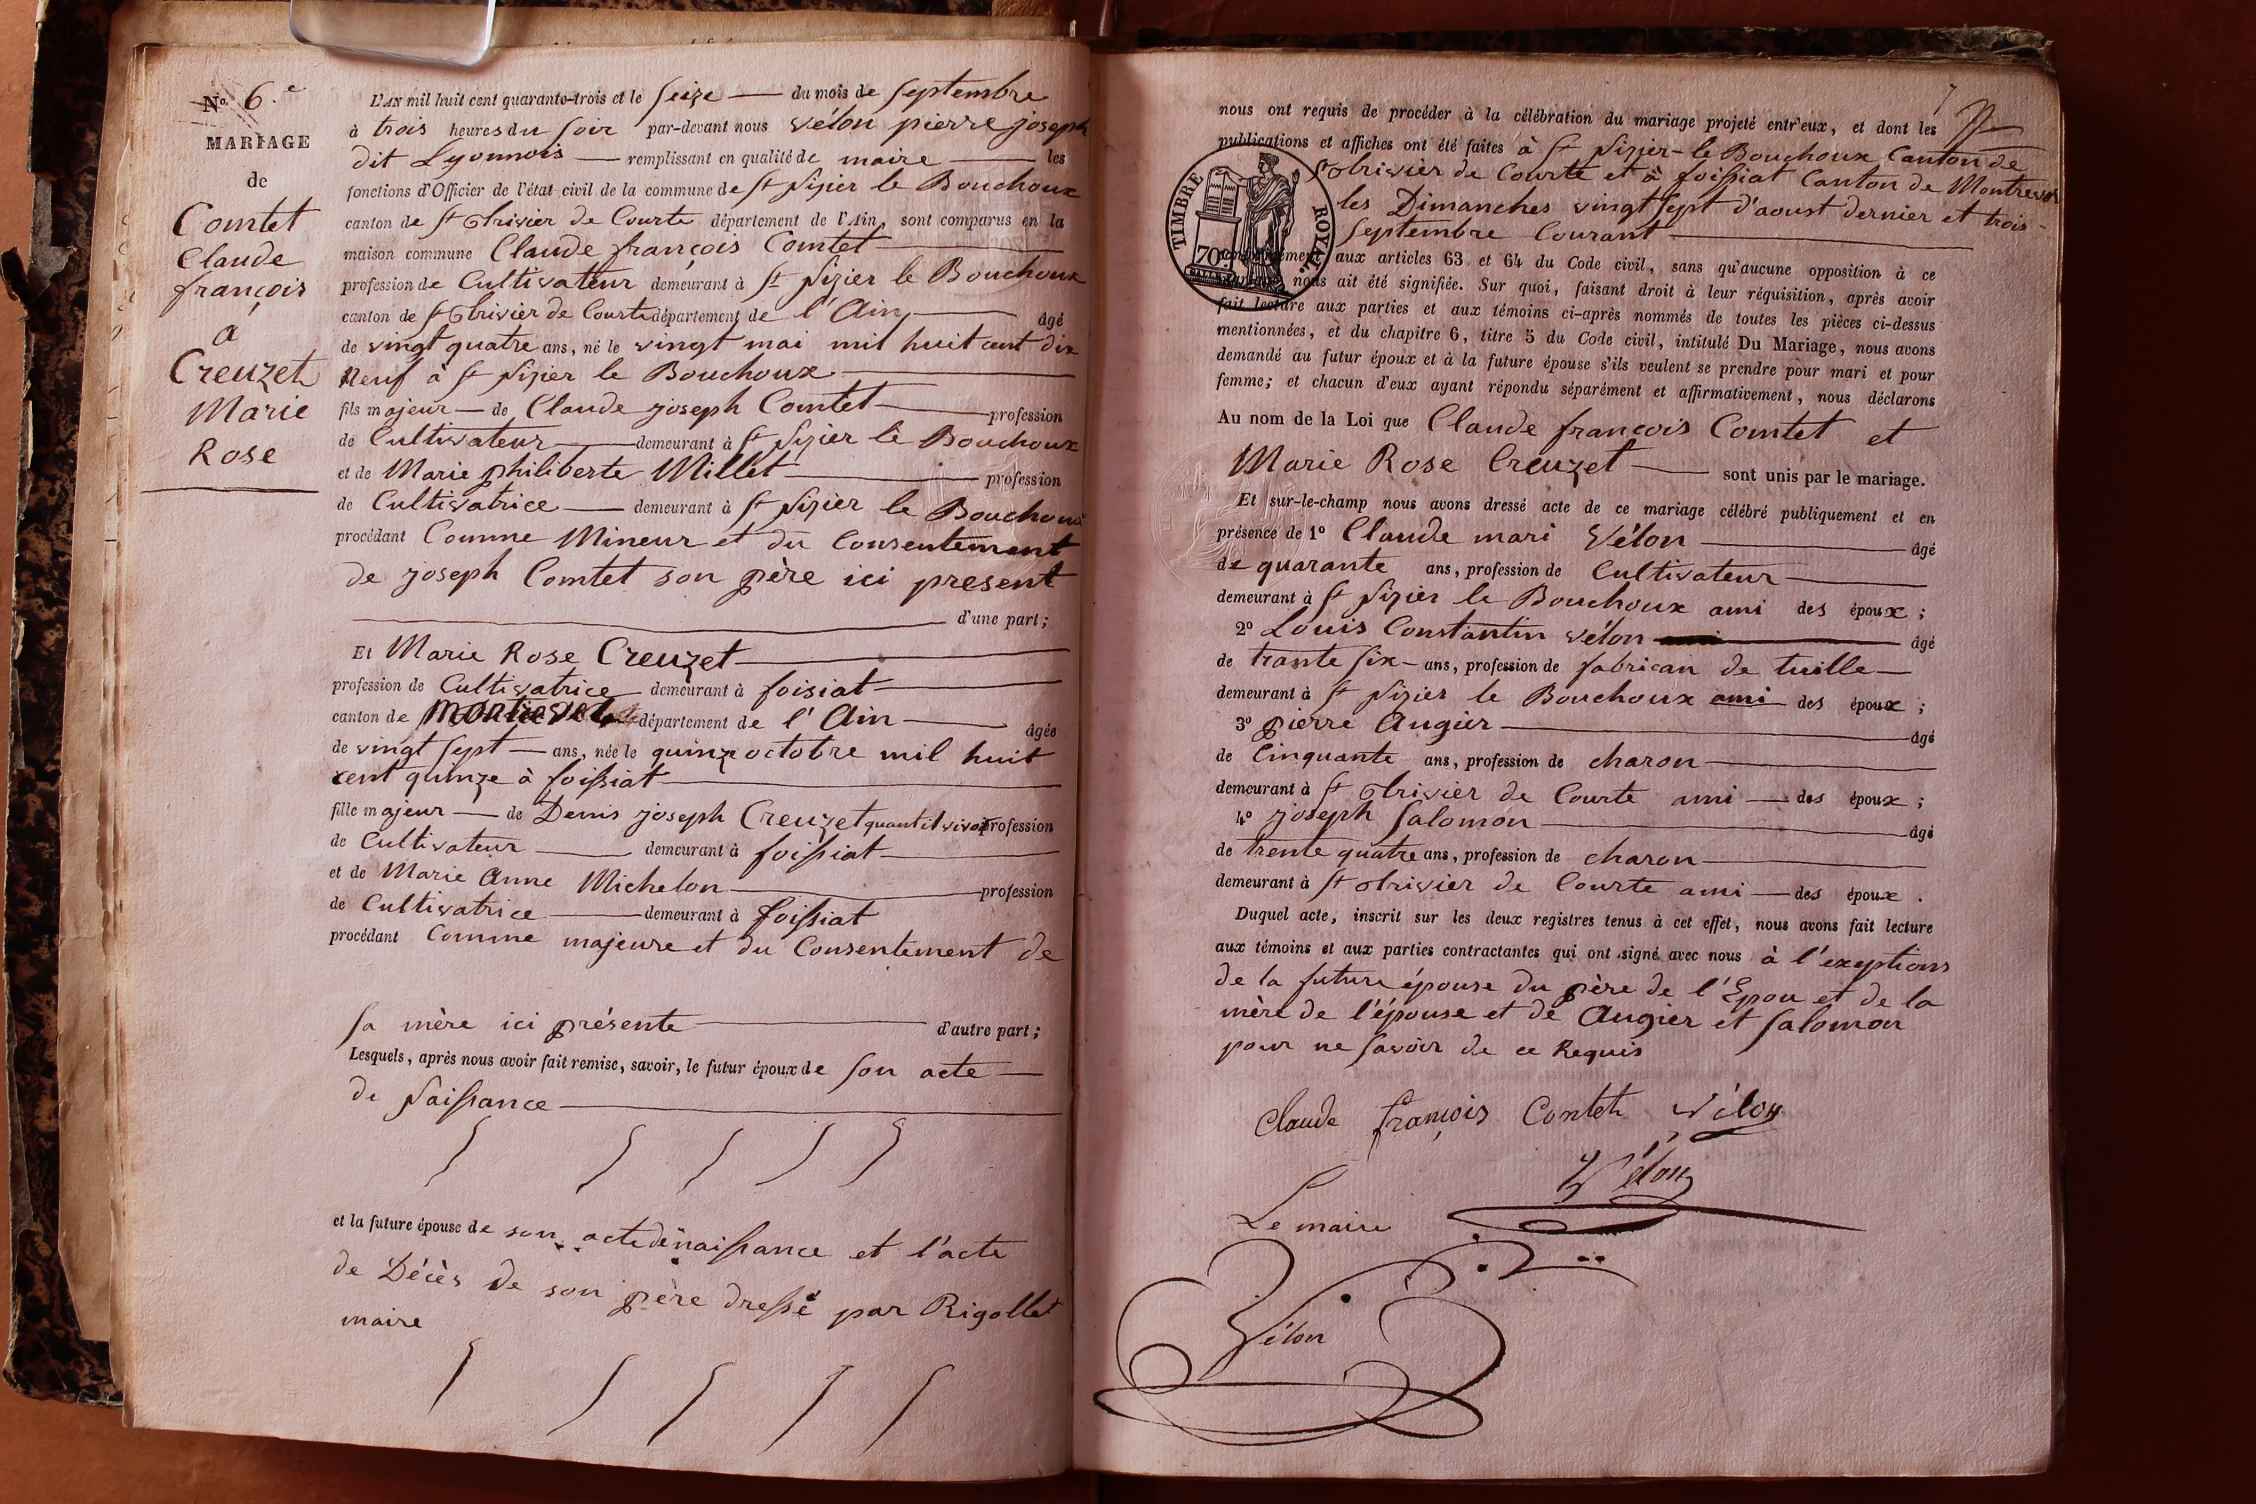 No 6.e
MARIAGE
de
Comtet
Claude
françois
a
Creuzet
Marie
Rose
L'AN mil huit cent quarante-trois et le seize du mois de septembre
à trois heures du soir par-devant nous vélon pierre joseph
dit Lyonnois remplissant en qualité de maire les
fonctions d'Officier de l'état civil de la commune de St Nizier le Bouchoux
canton de St Trivier de Courte département de l'Ain, sont comparus en la
maison commune Claude françois Comtet
profession de Cultivateur demeurant à St Nizier le Bouchoux
canton de St Trivier de Courte département de l'Ain, âgé
de vingt quatre ans, né le vingt mai mil huit cent dix
Neuf à St Nizier le Bouchoux
fils majeur de Claude joseph Comtet profession
de Cultivateur demeurant à St Nizier le Bouchoux
et de Marie philiberte Millet profession
de Cultivatrice demeurant à St Nizier le Bouchoux
procédant Comme Mineur et du Consentement
de joseph Comtet son père ici present
d'une part;
Et Marie Rose Creuzet
profession de Cultivatrice demeurant à foisiat
canton de Montrevel département de l'Ain âgée
de vingt sept ans, née le quinze octobre mil huit
cent quinze à foissiat
fille majeur de Denis joseph Creuzet quantil vivoit profession
de Cultivateur demeurant à foissiat
et de Marie Anne Michelon profession
de Cultivatrice demeurant à foissiat
procédant Comme majeure et du Consentement de
sa mère ici présente d'autre part;
Lesquels, après nous avoir fait remise, savoir, le futur époux de son acte
de Naissance
et la future épouse de son acte de naissance et l'acte
de Décès de son père dressé par Rigollet
maire
7
nous ont requis de procéder à la célébration du mariage projeté entr'eux, et dont les
publications et affiches ont été faites à St Nizier-le Bouchoux Canton de
St Trivier de Courte et à foissiat Canton de Montrevel
les Dimanches vingt sept d'aoust dernier et trois
septembre Courant
TIMBRE ROYAL.
70c
conformément aux articles 63 et 64 du Code civil, sans qu'aucune opposition à ce
mariage nous ait été signifiée. Sur quoi, faisant droit à leur réquisition, après avoir
fait lecture aux parties et aux témoins ci-après nommés de toutes les pièces ci-dessus
mentionnées, et du chapitre 6, titre 5 du Code civil, intitulé Du Mariage, nous avons
demandé au futur époux et à la future épouse s'ils veulent se prendre pour mari et pour
femme; et chacun d'eux ayant répondu séparément et affirmativement, nous déclarons
Au nom de la Loi que Claude françois Comtet et
Marie Rose Creuzet sont unis par le mariage.
Et sur-le-champ nous avons dressé acte de ce mariage célébré publiquement et en
présence de 1º Claude mari Vélon âgé
de quarante ans, profession de Cultivateur
demeurant à St Nizier le Bouchoux ami des époux;
2º Louis Constantin vélon âgé
de trante six ans, profession de fabrican de tuille
demeurant à St Nizier le Bouchoux ami des époux;
3º pierre Augier âgé
de Cinquante ans, profession de charon
demeurant à St Trivier de Courte ami des époux;
4º joseph Salomon âgé
de trente quatre ans, profession de charon
demeurant à St Trivier de Courte ami des époux.
Duquel acte, inscrit sur les deux registres tenus à cet effet, nous avons fait lecture
aux témoins et aux parties contractantes qui ont signé avec nous à l'exeptions
de la future épouse du père de l'Epou et de la
mère de l'épouse et de Augier et Salomon
pour ne savoir de ce Requis
Claude François Contet Vélon
Vélon
Le maire
Vélon